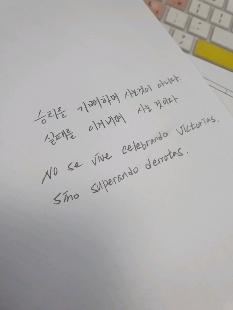 승리를 기뻐하며 사는것이 아니라
실패를 이겨내며 사는 것이다
No se vive celebrando victorias,
sino superando derrotas.